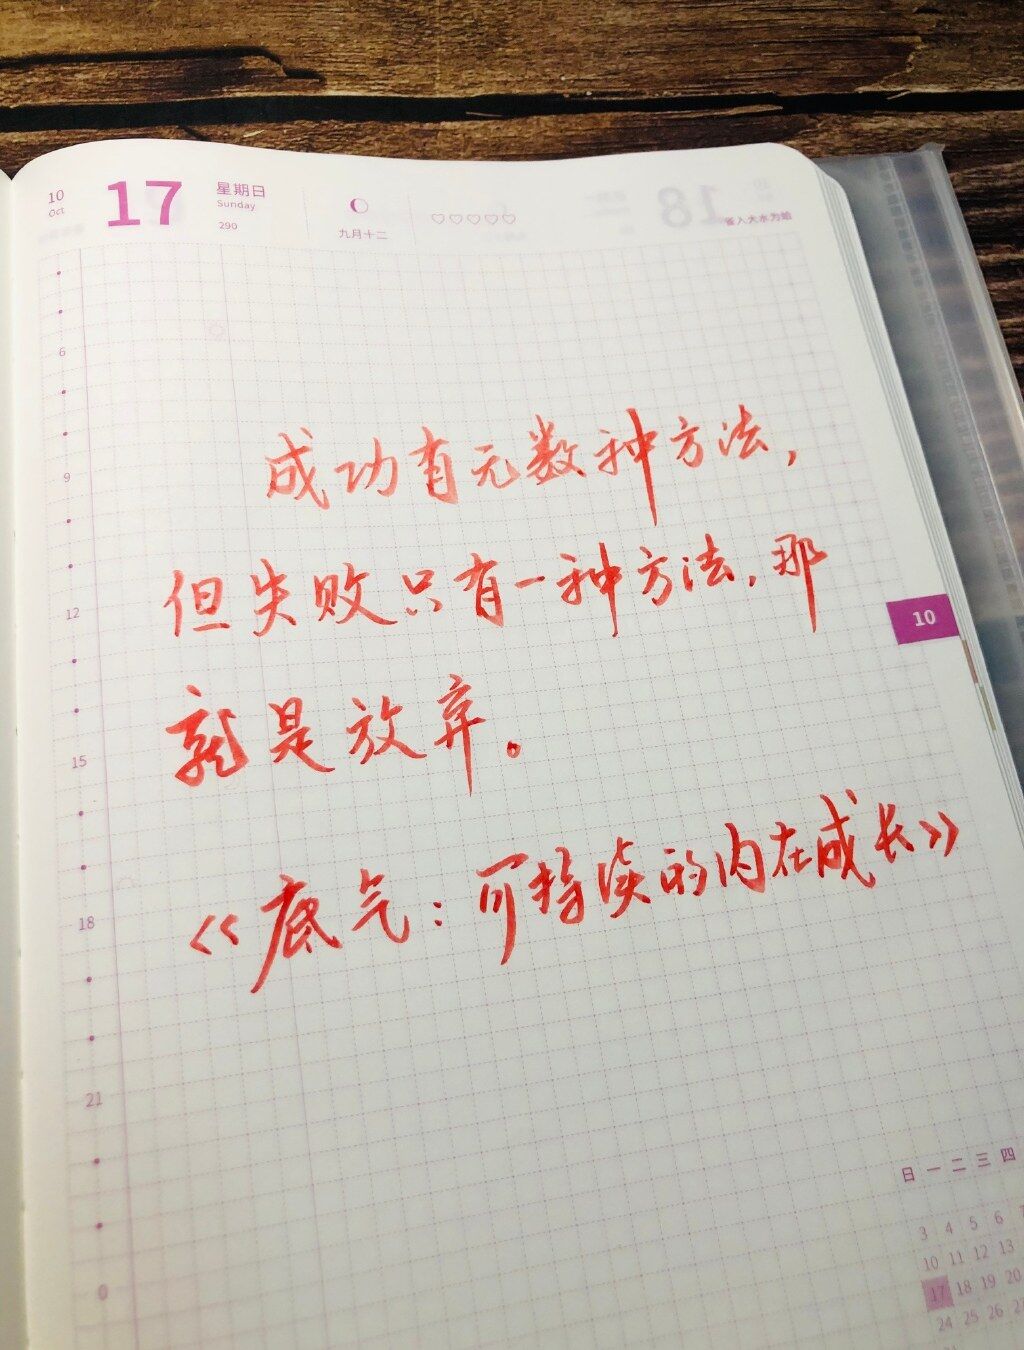 10 Oct 17 星期日 Sunday 290 九月十二 ♡♡♡♡♡
18
雀入大水为蛤
6
9
成功有无数种方法，
12
但失败只有一种方法，那
10
15
就是放弃。
18
《底气：可持续的内在成长》
21
0
日 一 二 三 四
3 4 5 6 7
10 11 12 13
17 18 19 20
24 25 26